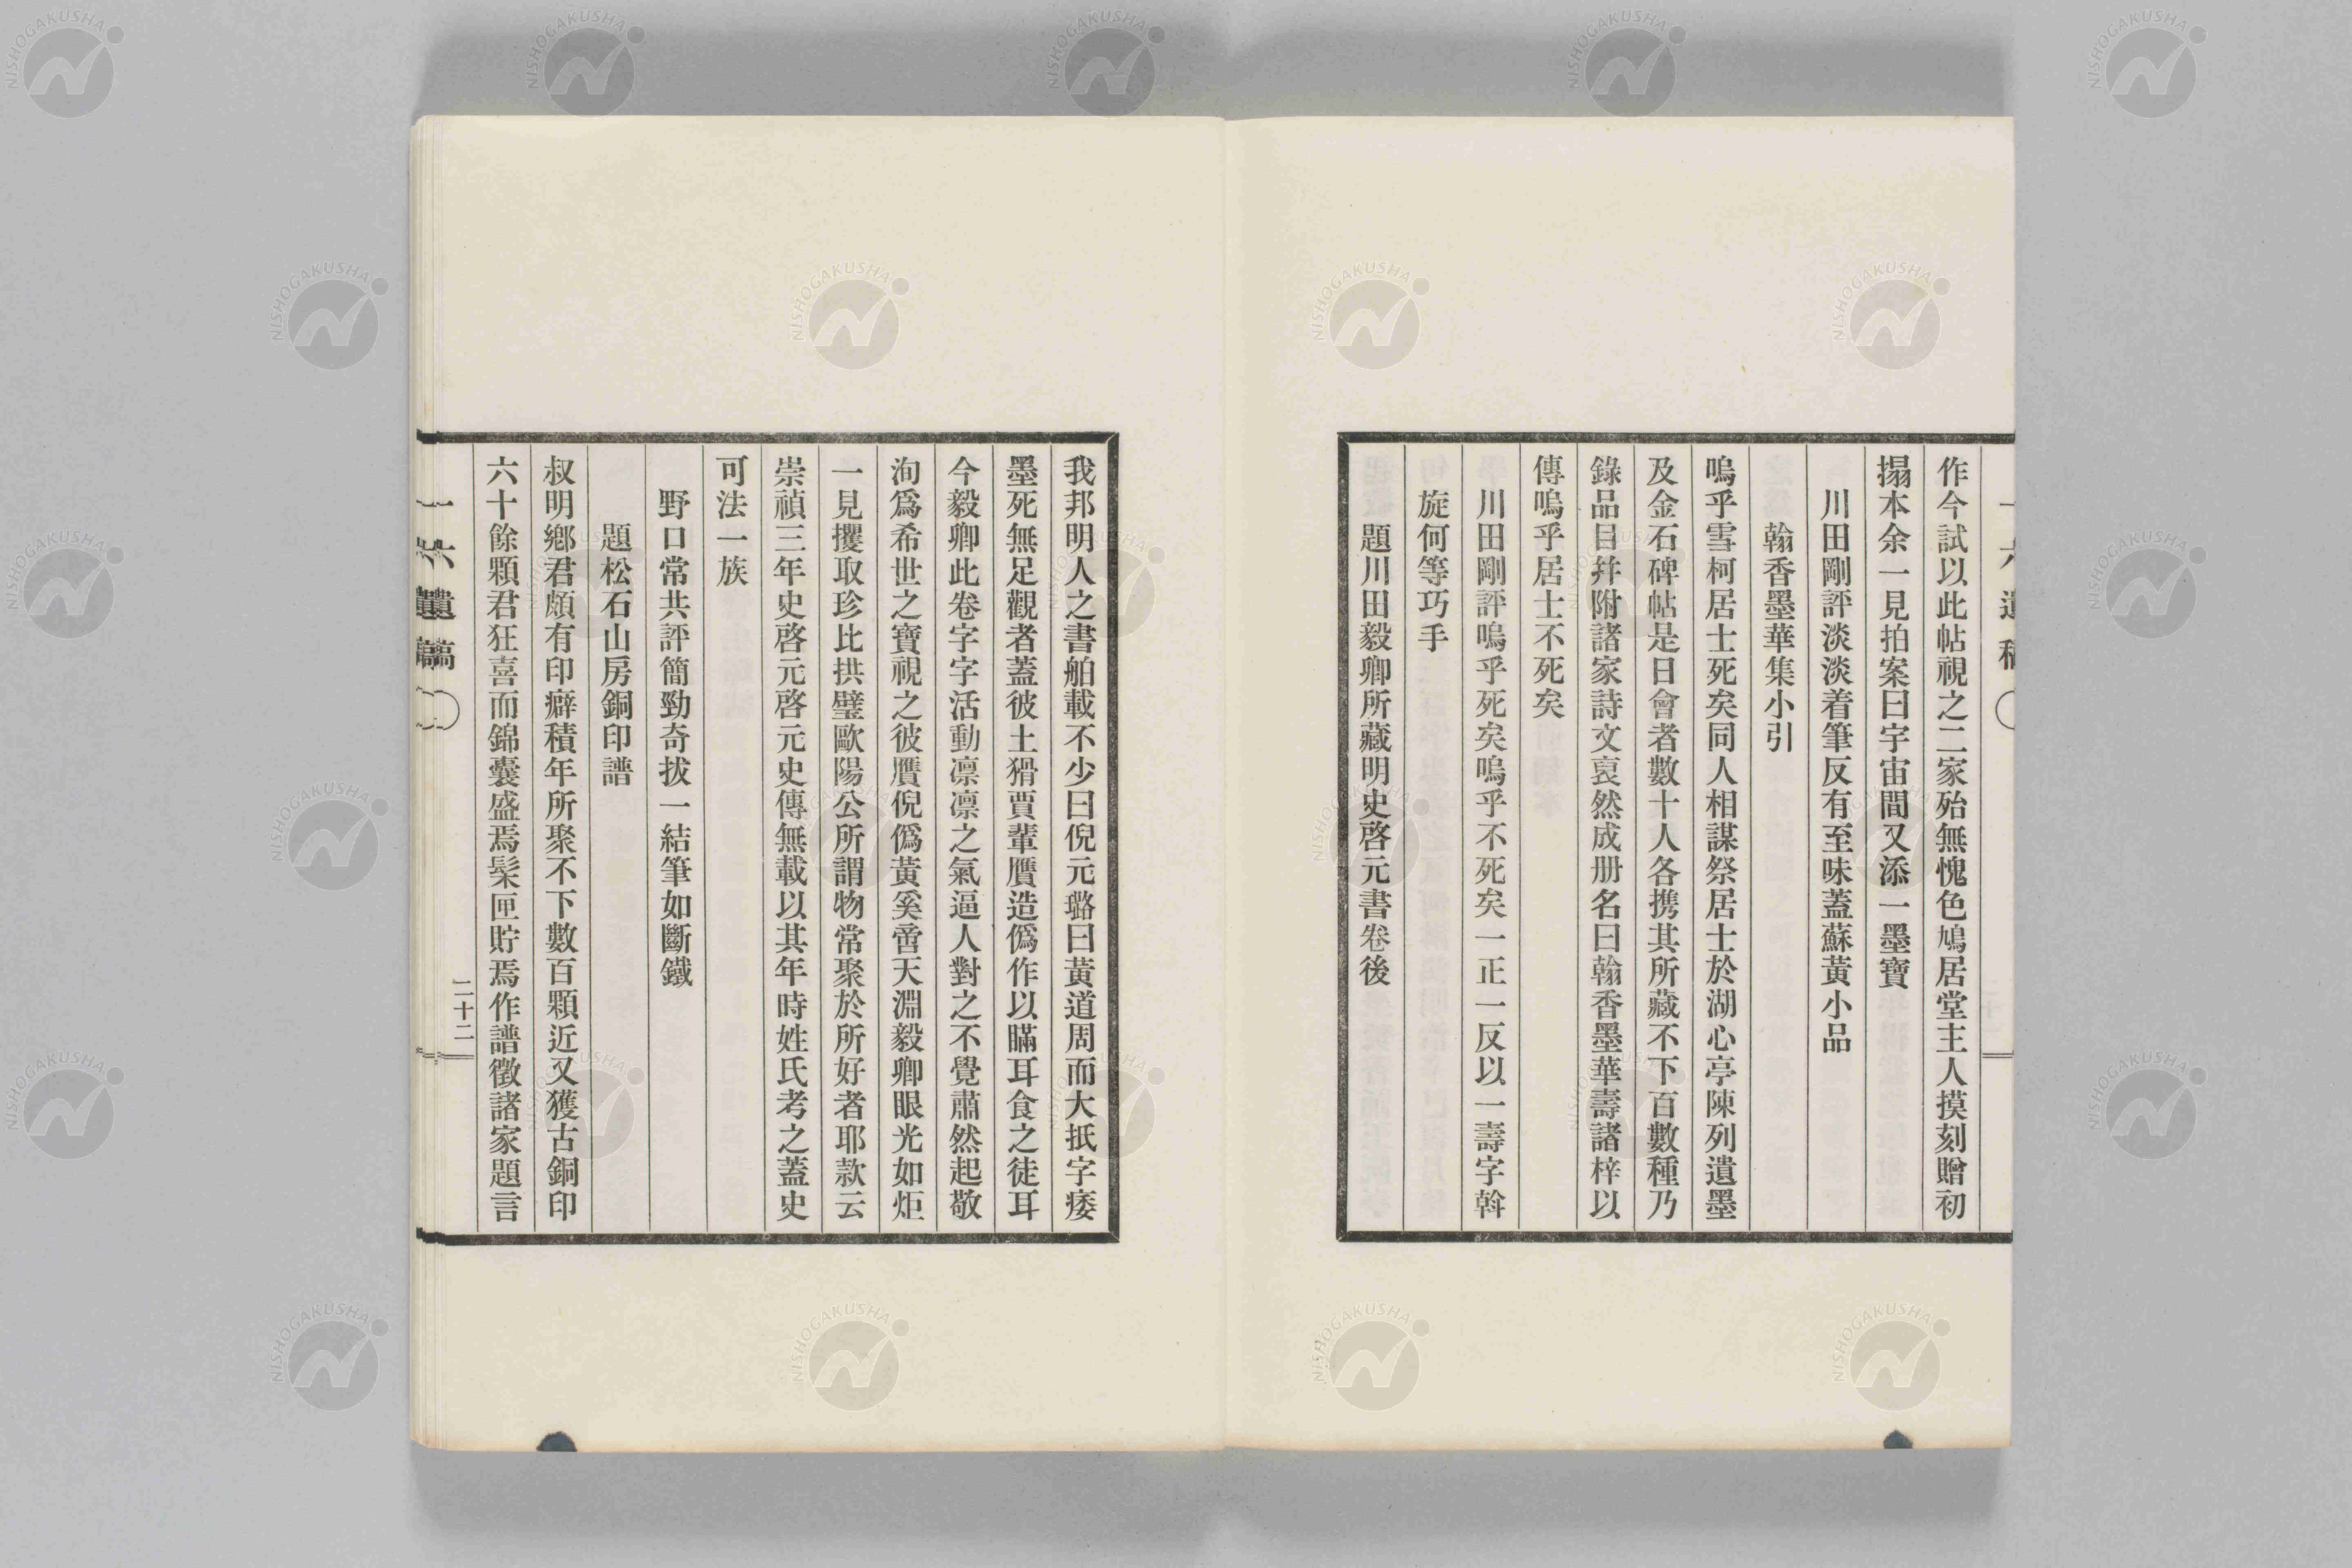 作今試以此帖視之二家殆無愧色鳩居堂主人摸刻贈初
搨本余一見拍案曰宇宙間又添一墨寶
川田剛評淡淡着筆反有至味蓋蘇黃小品
翰香墨華集小引
嗚乎雪柯居士死矣同人相謀祭居士於湖心亭陳列遺墨
及金石碑帖是日會者數十人各携其所藏不下百數種乃
錄品目幷附諸家詩文裒然成册名曰翰香墨華壽諸梓以
傳嗚乎居士不死矣
川田剛評嗚乎死矣嗚乎不死矣一正一反以一壽字斡
旋何等巧手
題川田毅卿所藏明史啓元書卷後
我邦明人之書舶載不少曰倪元璐曰黃道周而大抵字痿
墨死無足觀者蓋彼土猾賈輩贋造僞作以瞞耳食之徒耳
今毅卿此卷字字活動凛凛之氣逼人對之不覺肅然起敬
洵爲希世之寶視之彼贋倪僞黃奚啻天淵毅卿眼光如炬
一見攫取珍比拱璧歐陽公所謂物常聚於所好者耶款云
崇禎三年史啓元啓元史傳無載以其年時姓氏考之蓋史
可法一族
野口常共評簡勁奇拔一結筆如斷鐵
題松石山房銅印譜
叔明鄕君頗有印癖積年所聚不下數百顆近又獲古銅印
六十餘顆君狂喜而錦囊盛焉髹匣貯焉作譜徵諸家題言
一六遺稿
二十二
NISHOGAKUSHA